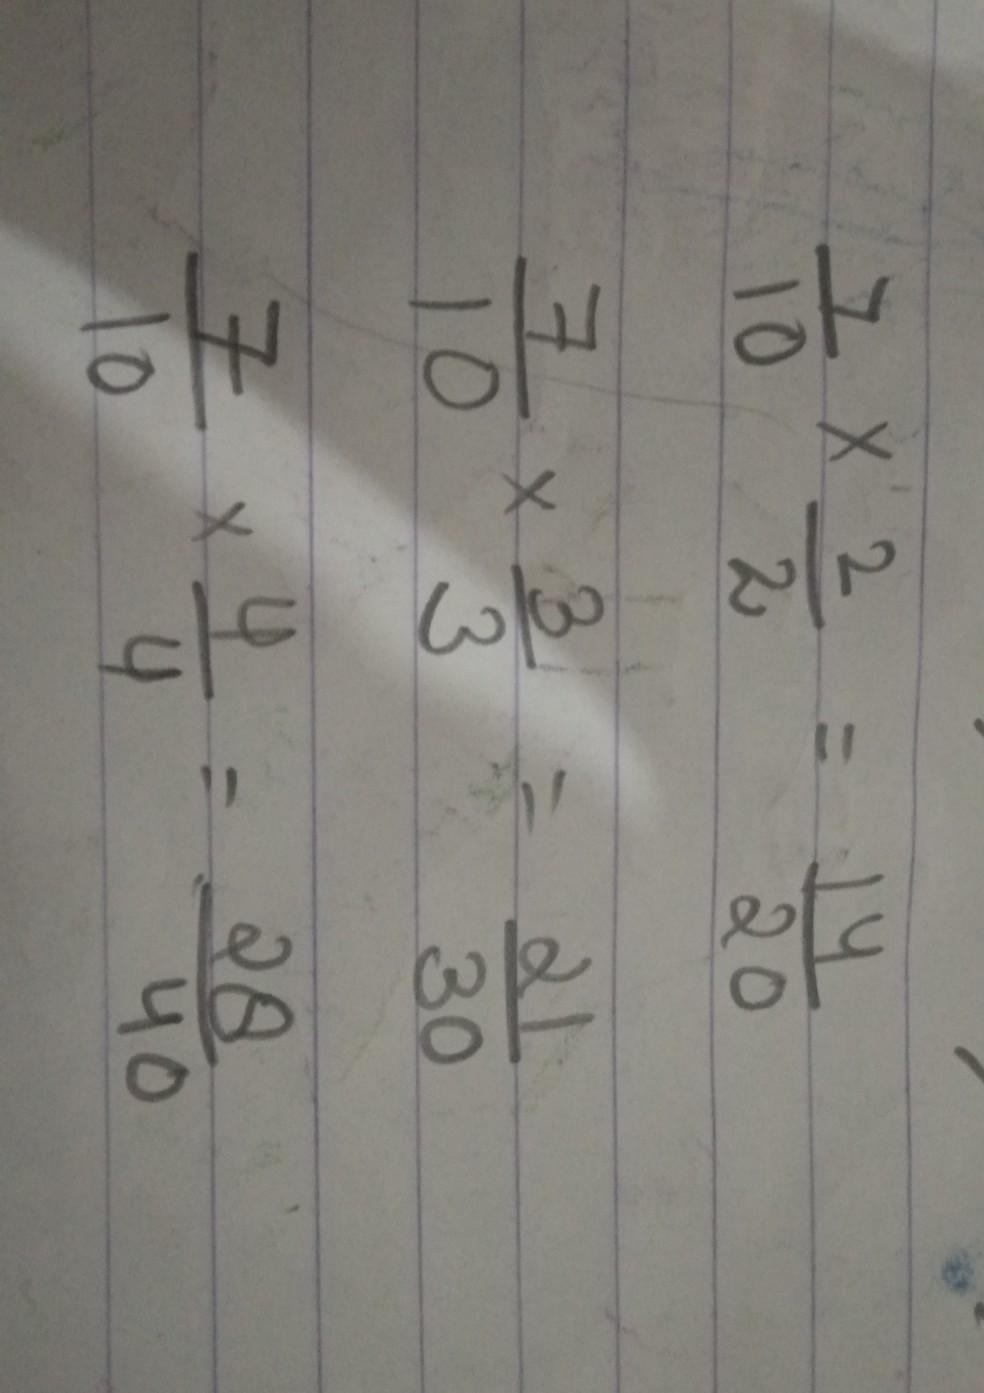 7/10 × 2/2 = 14/20
7/10 × 3/3 = 21/30
7/10 × 4/4 = 28/40